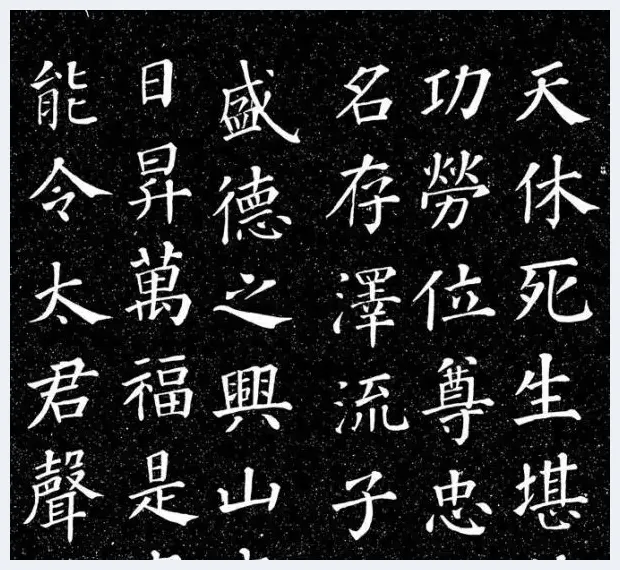 天休死生堪
功勞位尊忠
名存澤流子
盛德之興山
日昇萬福是
能令太君聲